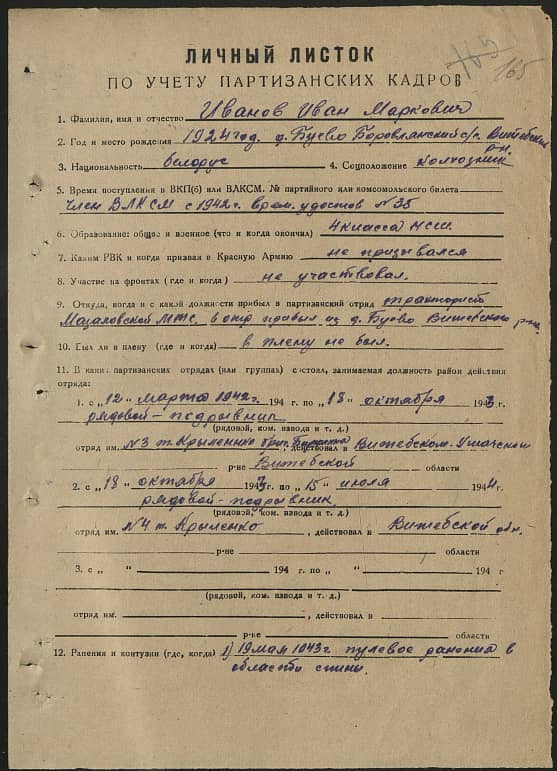 165
165
ЛИЧНЫЙ ЛИСТОК
ПО УЧЕТУ ПАРТИЗАНСКИХ КАДРОВ
1. Фамилия, имя и отчество Иванов Иван Маркович
2. Год и место рождения 1924 год. д. Буево Боровлянский с/с. Витебский
р-н.
3. Национальность белорус 4. Соцположение Колхозник
5. Время поступления в ВКП(б) или ВЛКСМ. № партийного или комсомольского билета
член ВЛКСМ с 1942 г. врем. удостов №35
6. Образование: общее и военное (что и когда окончил) 4 класса НСШ.
7. Каким РВК и когда призван в Красную Армию не призывался
8. Участие на фронтах (где и когда) не участвовал.
9. Откуда, когда и с какой должности прибыл в партизанский отряд тракторист
Мазаловской МТС. в отр. прибыл из д. Буево Витебского р-на.
10. Был ли в плену (где и когда) в плену не был.
11. В каких партизанских отрядах (или группах) состоял, занимаемая должность район действия
отряда:
1. с "12" марта 1942 г. 194 г. по "18" октября 1943 г.
рядовой-подрывник
(рядовой, ком. взвода и т. д.)
отряд им. №3 т. Крыленко , действовал в Витебском. Ушачском
р-не Витебской области
2. с "18" октября 1943 г. по "15" июля 1944 г.
рядовой-подрывник
(рядовой, ком. взвода и т. д.)
отряд им. №4 т. Крыленко , действовал в Витебской обл.
р-не области
3. с " " 194 г. по " " 194 г
(рядовой, ком. взвода и т. д.)
отряд им. , действовал в
р-не область
12. Ранения и контузии (где, когда) 1) 19 мая 1943 г. пулевое ранение в
области спины.